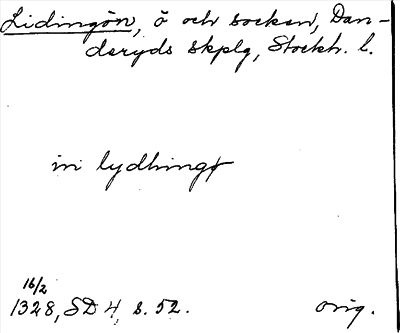 Lidingön, ö och socken, Dan-
deryds skplg, Stockh. l.
in lydhingø
16/2
1328, SD 4, s. 52. orig.